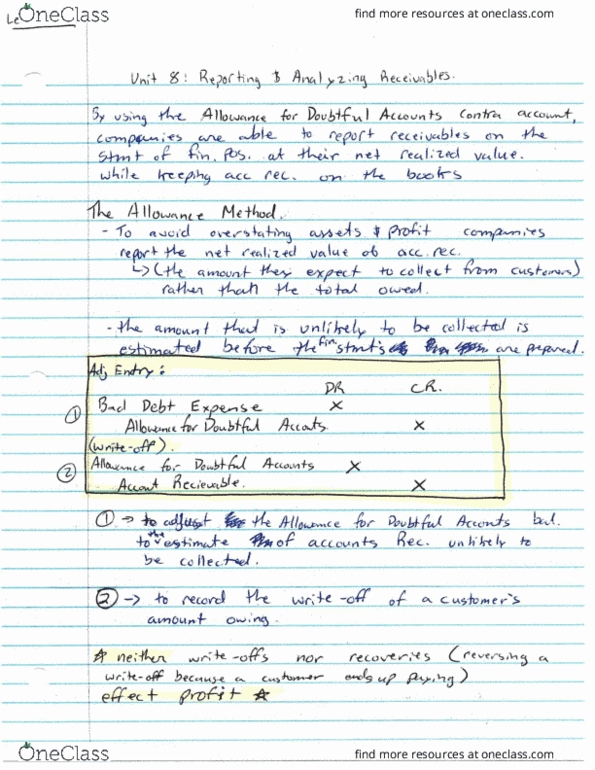 Le OneClass
find more resources at oneclass.com
Unit 8: Reporting & Analyzing Receivables.
By using the Allowance for Doubtful Accounts contra account,
companies are able to report receivables on the
stmt of fin. pos. at their net realized value.
while keeping acc rec. on the books
The Allowance Method.
- To avoid overstating assets & profit companies
report the net realized value of acc. rec.
↳ (the amount they expect to collect from customers)
rather than the total owed.
- the amount that is unlikely to be collected is
estimated before the fin stmt's are prepared.
Adj Entry:
DR CR.
① Bad Debt Expense X
Allowance for Doubtful Accouts. X
(write-off).
② Allowance for Doubtful Accounts X
Accout Recievable. X
① → to adjust the Allowance for Doubtful Accounts bal.
to the estimate of accounts Rec. unlikely to
be collected.
② → to record the write-off of a customer's
amount owing.
* neither write-offs nor recoveries (reversing a
write-off because a customer ends up paying)
effect profit *
OneClass
find more resources at oneclass.com